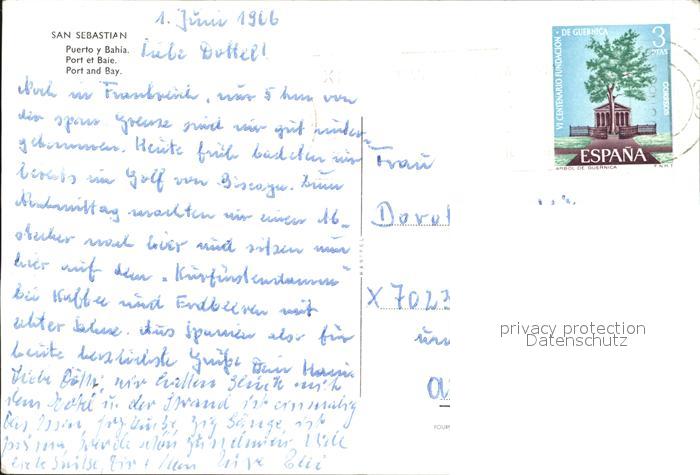 1. Juni 1966
SAN SEBASTIAN
Puerto y Bahía.
Port et Baie.
Port and Bay.
Liebe Dottel!
Noch in Frankreich, nur 5 km von
der span. Grenze sind wir gut unter-
gekommen. Heute früh badeten wir
bereits im Golf von Biscaya. Zum
Nachmittag machten wir einen Ab-
stecher nach hier und sitzen nun
hier auf dem „Kurfürstendamm"
bei Kaffee und Erdbeeren mit
echter Sahne. Aus Spanien also für
heute herzlichste Grüße Dein
Liebe Dotti, wir hatten Glück mit
dem Hotel u. der Strand ist einmalig
Das Essen, ist
prima, werde schon Viele
viele
Frau
Dorot
X 7023
VI CENTENARIO FUNDACION DE GUERNICA
3
PTAS
CORREOS
ESPAÑA
ARBOL DE GUERNICA
F.N.M.T.
privacy protection
Datenschutz
FOUR